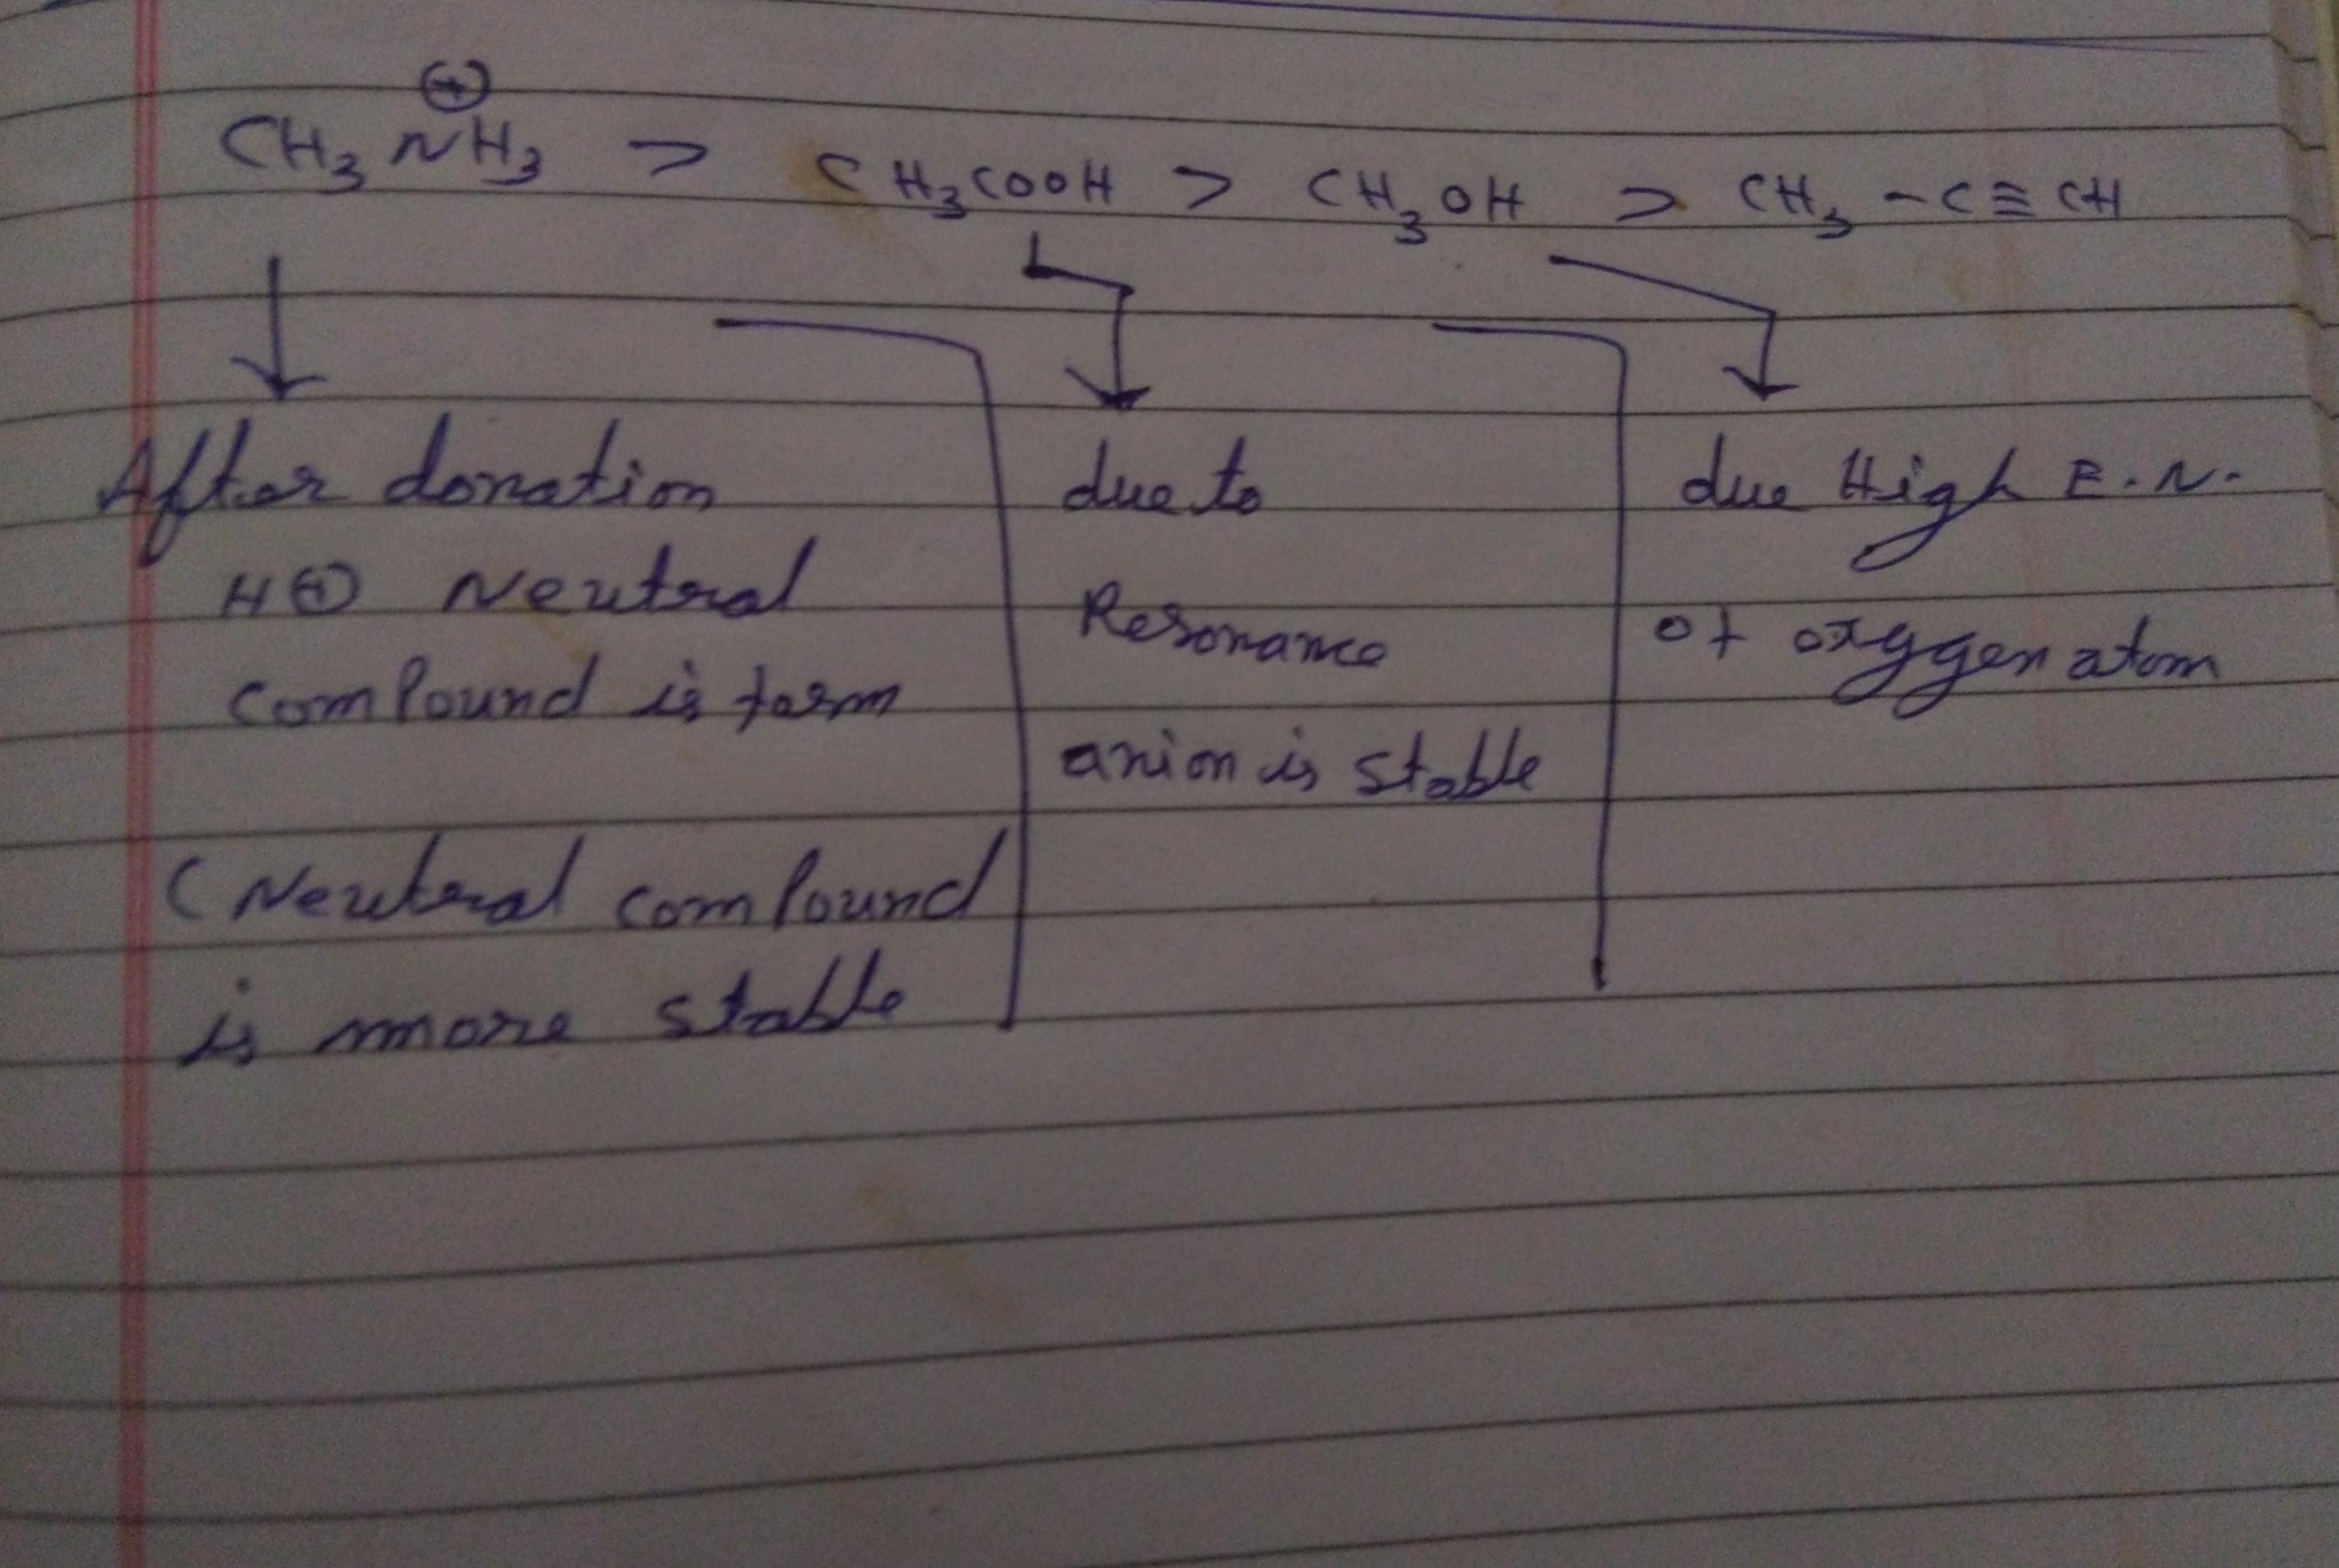 CH₃N⊕H₃ > CH₃COOH > CH₃OH > CH₃-C≡CH
After donation
H⊕ Neutral
compound is form
(Neutral compound
is more stable
due to
Resonance
anion is stable
due High E.N.
of oxygen atom